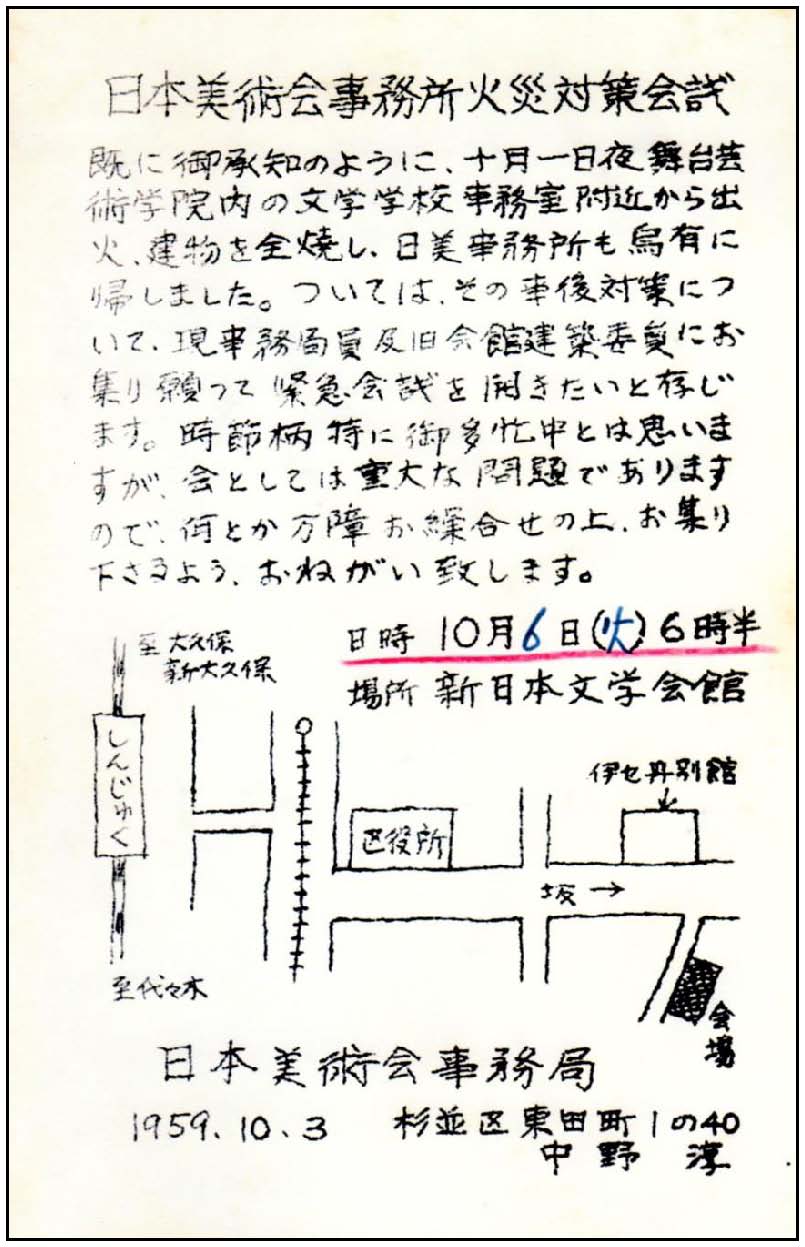 日本美術会事務所火災対策会議
既に御承知のように、十月一日夜舞台芸
術学院内の文学学校事務室附近から出
火、建物を全焼し、日美事務所も烏有に
帰しました。ついては、その事後対策につ
いて、現事務局員及旧会館建築委員にお
集り願つて緊急会議を開きたいと存じ
ます。時節柄特に御多忙中とは思いま
すが、会としては重大な問題であります
ので、何とか万障お繰合せの上、お集り
下さるよう、おねがい致します。
日時 10月6日(火)6時半
場所 新日本文学会館
至 大久保
新大久保
しんじゅく
至代々木
区役所
伊セ丹別館
坂→
会場
日本美術会事務局
1959.10.3 杉並区東田町1の40
中野 淳